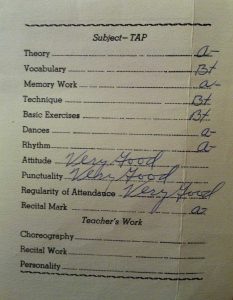 Subject—TAP
Theory a-
Vocabulary B+
Memory Work a-
Technique B+
Basic Exercises B+
Dances a-
Rhythm a-
Attitude Very Good
Punctuality Very Good
Regularity of Attendance Very Good
Recital Mark a-
Teacher's Work
Choreography
Recital Work
Personality